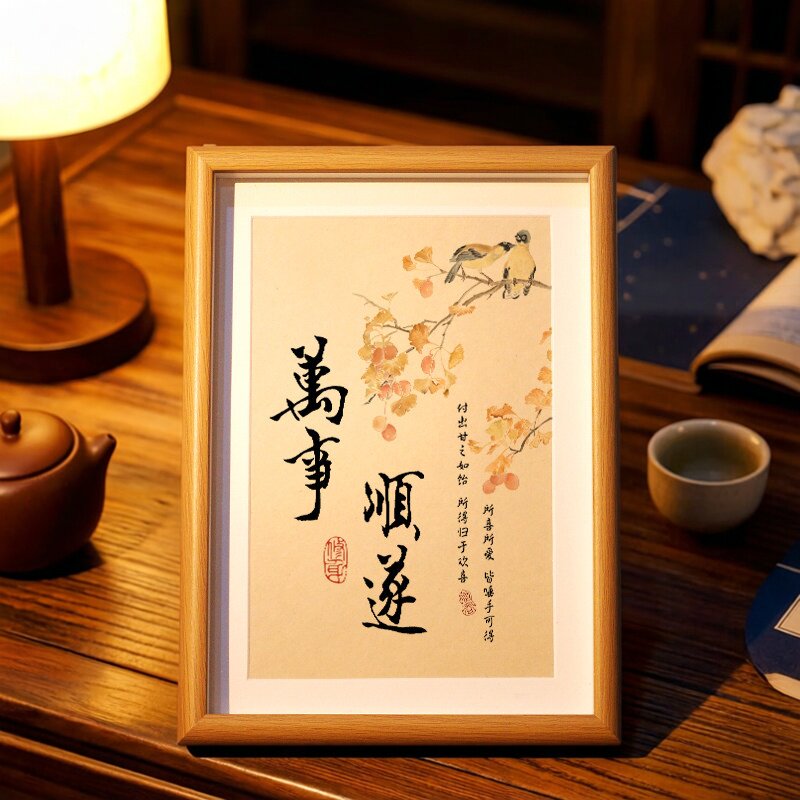 萬事
順遂
所喜所愛 皆唾手可得
付出甘之如饴 所得归于欢喜